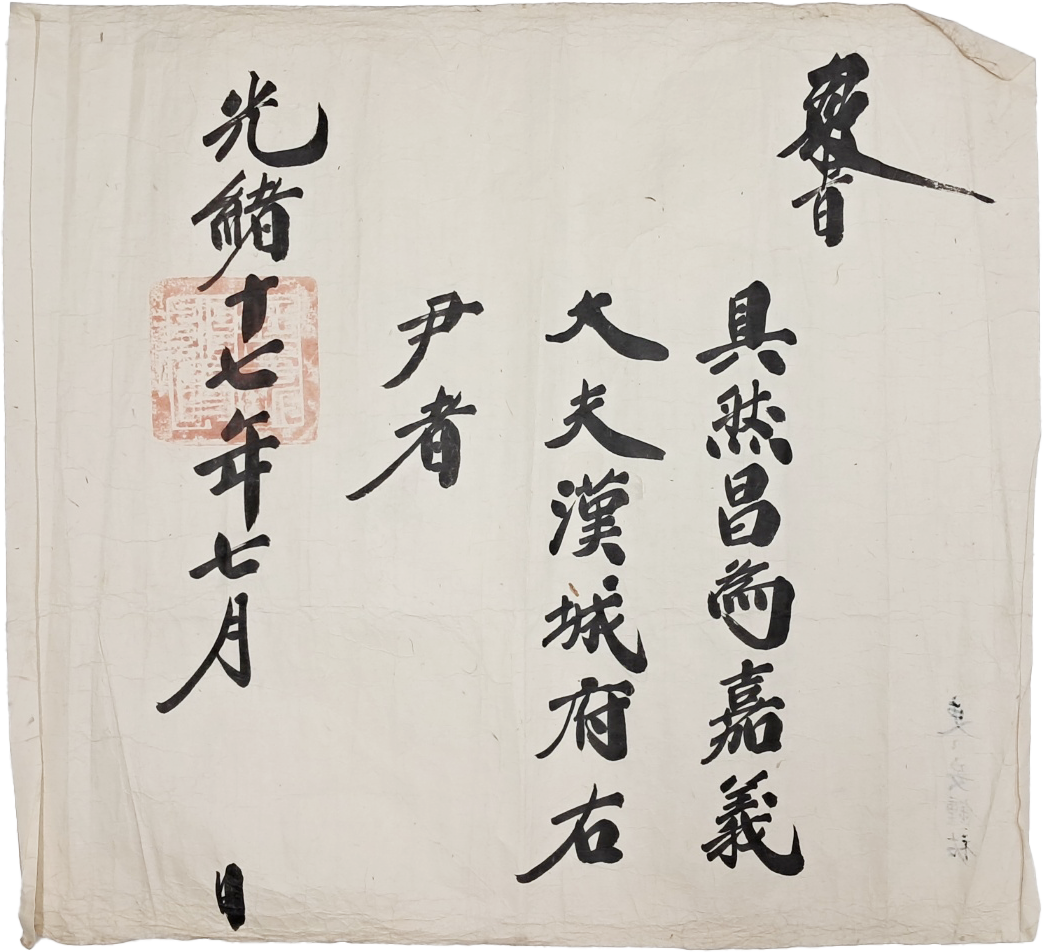 敎旨
具然昌爲嘉義
大夫漢城府右
尹者
光緖十七年七月 日